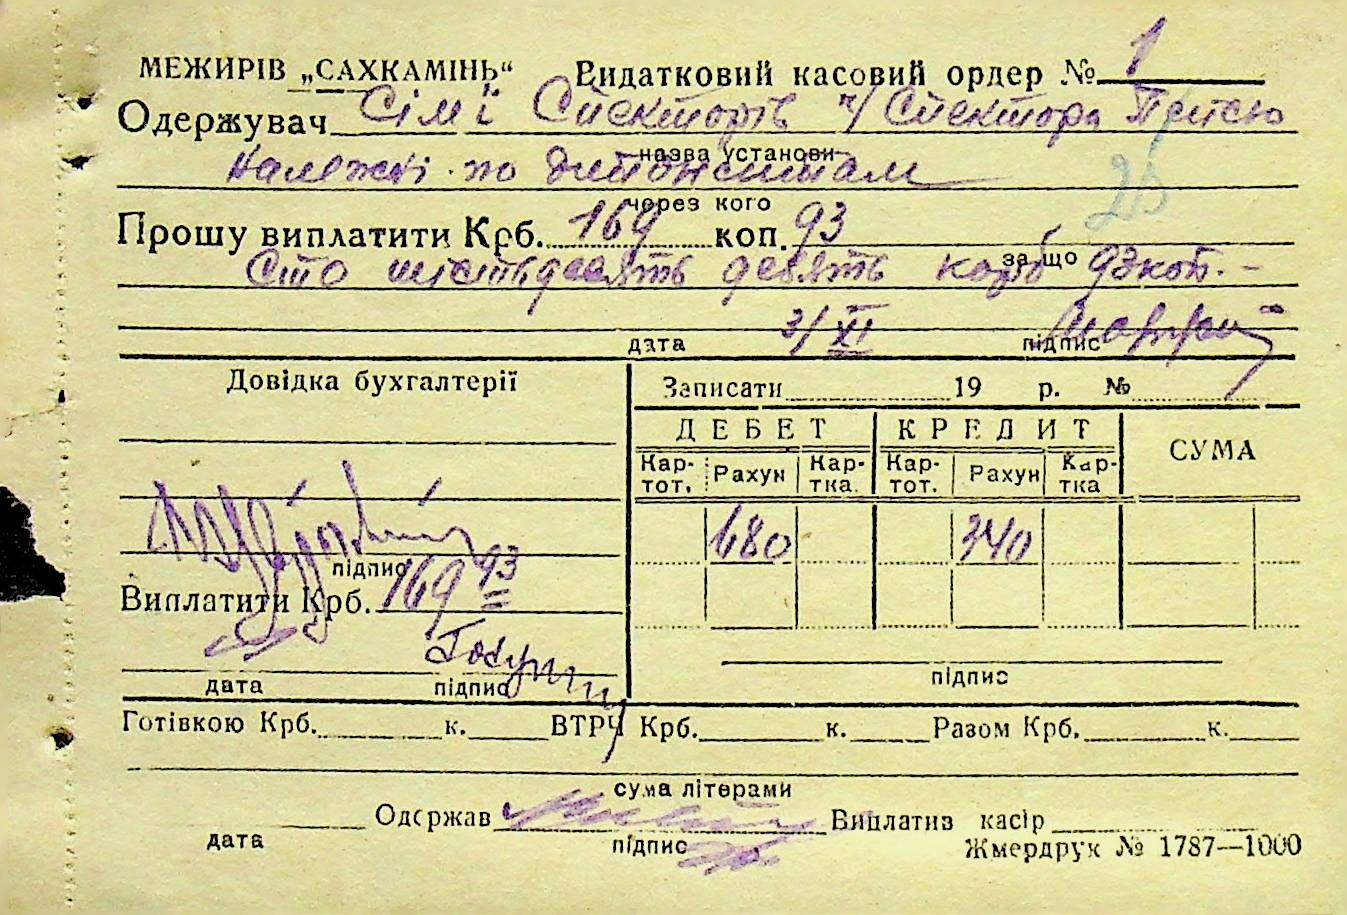 МЕЖИРІВ „САХКАМІНЬ“ Видатковий касовий ордер № 1
Одержувач Сім'ї Спекторів ч/ Спектора
назва установи
належні по депонентам
26
через кого
Прошу виплатити Крб. 169 коп. 93
за що
Сто шістьдесять девять карб 93 коп. -
дата 3/XI підпис
Довідка бухгалтерії
Записати 19 р. №
ДЕБЕТ КРЕДИТ СУМА
Кар-тот. Рахун Кар-тка Кар-тот. Рахун Кар-тка
680 340
підпис
Виплатити Крб. 169 93
дата підпис
підпис
Готівкою Крб. к. ВТРЧ Крб. к. Разом Крб. к.
сума літерами
Одержав Виплатив касір
дата підпис
Жмердрук № 1787—1000